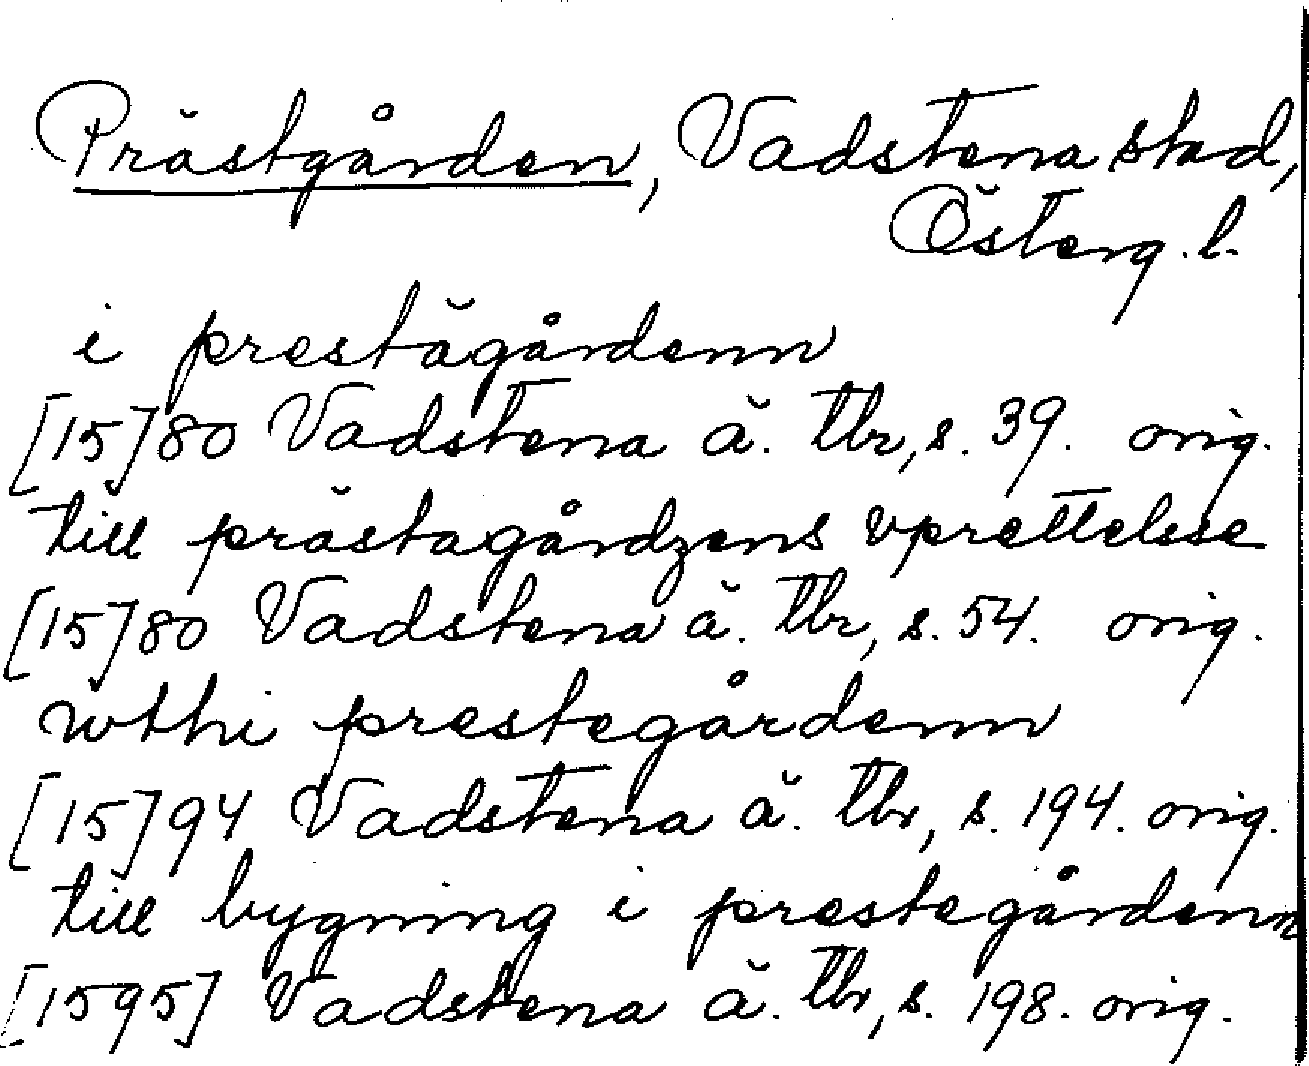 Prästgården, Vadstena stad,
Österg. l.
i prestägårdenn
[15]80 Vadstena ä. tbr, s. 39. orig.
till prästagårdzens vprettelsse
[15]80 Vadstena ä. tbr, s. 54. orig.
wthi prestegårdenn
[15]94 Vadstena ä. tbr, s. 194. orig.
till bygning i prestegårdenn
[1595] Vadstena ä. tbr, s. 198. orig.